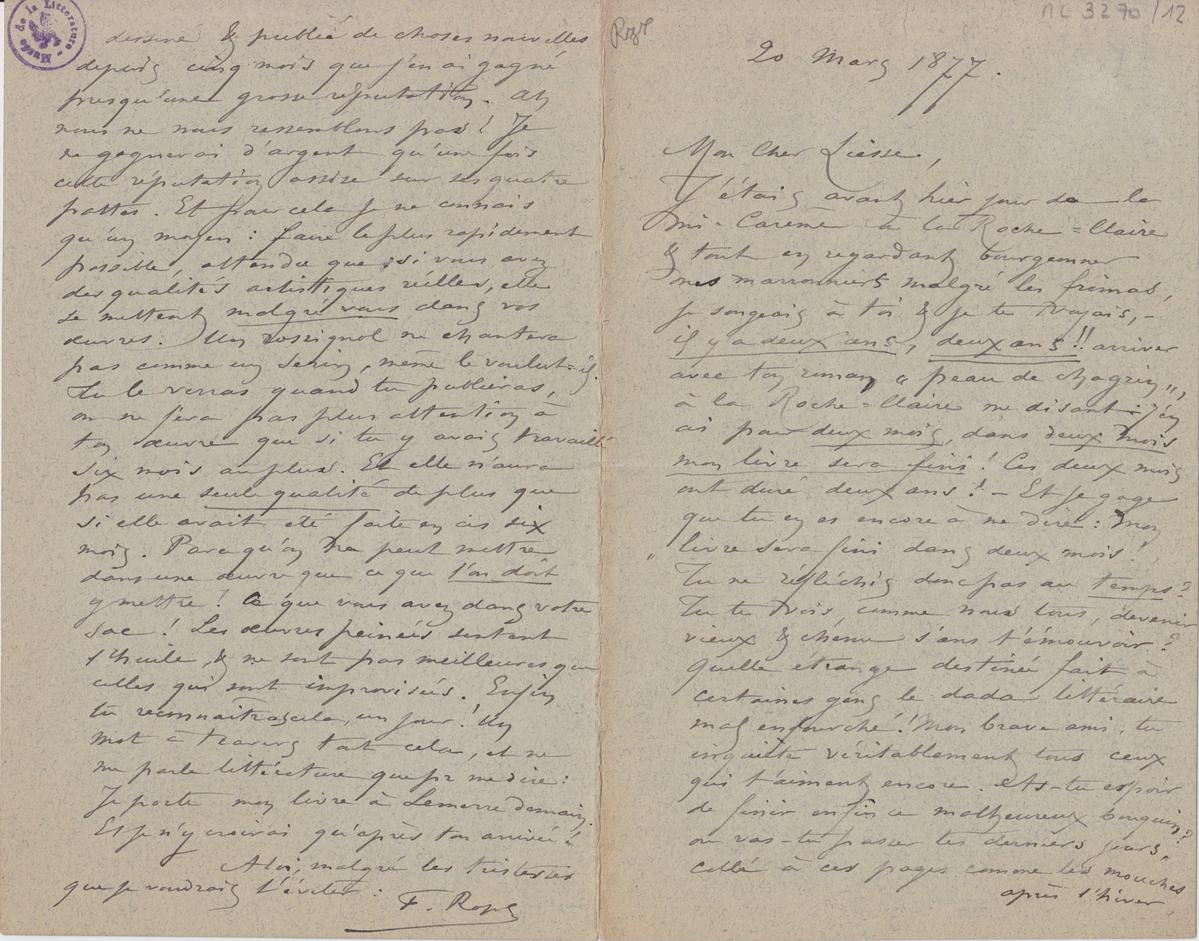 ML 3270/12
Rops
20 Mars 1877.
Mon Cher Liesse,
J'étais avant hier jour de la
mi-Carême à la Roche=Claire
& tout en regardant bourgeonner
mes marronniers malgré les frimas,
je songeais à toi & je te voyais, -
il y a deux ans, deux ans!! arriver
avec ton roman, « peau de chagrin »,
à la Roche-Claire me disant: J'en
ai pour deux mois, dans deux mois
mon livre sera fini! Ces deux mois
ont duré deux ans! - Et je gage
que tu en es encore à me dire: mon
„ livre sera fini dans deux mois!
Tu ne réfléchis donc pas au temps?
Tu te vois comme nous tous, devenir
vieux & chenu sans t'émouvoir?
Quelle étrange destinée fait à
certaines gens le dada littéraire
mal enfourché! Mon brave ami, tu
inquiète véritablement tous ceux
qui t'aiment encore. As-tu espoir
de finir enfin ce malheureux bouquin?
ou vas-tu passer tes derniers jours,
collé à ces pages comme les mouches
après l'hiver
Musée de la Littérature
dessiné & publié de choses nouvelles
depuis cinq mois que j'en ai gagné
presqu'une grosse réputation. Ah
nous ne nous ressemblons pas! Je
ne gagnerai d'argent qu'une fois
cette réputation assise sur ses quatre
pattes. Et pour cela je ne connais
qu'un moyen: faire le plus rapidement
possible, attendu que si vous avez
des qualités artistiques réelles, elle
se mettent malgré vous dans vos
œuvres. Un rossignol ne chantera
pas comme un serin, même le voulut-il.
Tu le verras quand tu publieras,
on ne fera pas plus attention à
ton œuvre que si tu y avais travaillé
six mois au plus. Et elle n'aura
pas une seule qualité de plus que
si elle avait été faite en ces six
mois. Parcequ'on ne peut mettre
dans une œuvre que ce que l'on doit
y mettre! Ce que vous avez dans votre
sac! Les œuvres peinées sentent
l'huile, & ne sont pas meilleures que
celles qui sont improvisées. Enfin
tu reconnaitras cela, un jour! Un
mot à travers tout cela, et ne
me parle littérature que pr me dire:
Je porte mon livre à Lemerre demain.
Et je n'y croirai qu'après ton arrivée!
A toi, malgré les tristesses
que je voudrais t'éviter:
F. Rops